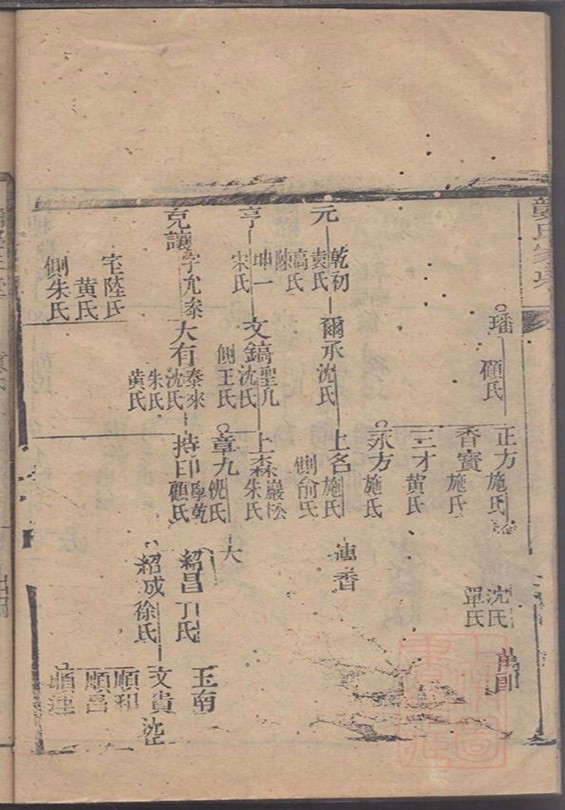 璠
顧氏
正方
施氏
香寶
施氏
三才
黃氏
永方
施氏
沈氏
單氏
元
乾初
袁氏
爾承
沈氏
上名
施氏
側俞氏
連香
亨
坤一
宋氏
陳氏
文鎬
沈氏
側王氏
上森
巖松
朱氏
章九
大
克讓
字允泰
宝陸氏
黃氏
側朱氏
大有
泰來
沈氏
朱氏
黃氏
持印
顧氏
紹昌
丁氏
紹成
徐氏
玉南
文貴
沈氏
順和
順昌
順連